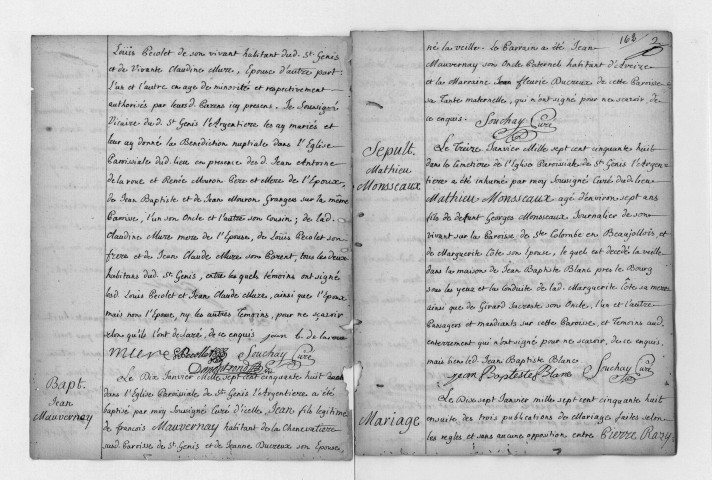 Loüis Pecolet de son vivant habitant dud. St. Genis
et de Vivante Claudine Mure, Epouse d'autre part.
l'un et l'autre en age de minorité et respectivement
authorisés par leursd. Parens icy present. Je Soussigné
Vicaire dud. St Genis l'Argentiere les ay mariés et
leur ay donné la Benediction nuptiale dans l'Eglise
Parroissiale dud. lieu en presence des d. Jean Antoine
de la roue et Renée Muron Pere et Mere de l'Epoux,
de Jean Baptiste et de Jean Muron Grangers sur la même
Paroisse, l'un son Oncle et l'autre son Cousin; de lad.
Claudine Mure mere de l'Epouse, de Loüis Pecolet son
frere et de Jean Claude Mure son Parent, tous les deux
habitans dud. St Genis, entre les quels témoins ont signé
lesd. Louis Pecolet et Jean Claude Mure, ainsi que l'Epoux
mais non l'Epouse, ny les autres Temoins, pour ne scavoir
selon qu'ils l'ont declaré, de ce enquis. jean b. de la roue
mure Pecollet Souchay Curé
Bapt.
Jean
Mauvernay
Le Dix Janvier Mille sept cent cinquante huit
dans l'Eglise Parroissiale de St. Genis l'Argentiere a été
baptisé par moy Soussigné Curé d'icelle, Jean fils legitime
de françois Mauvernay habitant de la Chenevatiere
sud. Paroisse de St. Genis et de Jeanne Ducreux son Epouse,
163 2
né la veille. Le Parrain a été Jean
Mauvernay son Oncle Paternel habitant d'Aveize
et la Marraine fleurie Ducreux de cette Paroisse
sa Tante maternelle, qui n'ont signé pour ne scavoir, de
ce enquis. Souchay Curé
Sepult.
Mathieu
Monsseaux
Le Treize Janvier Mille sept cent cinquante huit
dans le Cimetiere de l'Eglise Parroisiale de St. Genis l'Argen-
tiere a été inhumé par moy Soussigné Curé dud. lieu
Mathieu Monsseaux agé d'environ sept ans
fils de defunt Georges Monsseaux Journalier de son
vivant sur la Paroisse de Ste Colombe en Beaujollois et
de Marguerite Côte son Epouse, le quel est decedé la veille
dans la maison de Jean Baptiste Blanc pres le Bourg
sous les yeux et la Conduite de lad. Marguerite Côte sa mere
ainsi que de Girard son Oncle, l'un et l'autre
Passagers et mandiants sur cette Paroisse, et Temoins aud.
enterrement qui n'ont signé pour ne scavoir, de ce enquis,
mais bien led. Jean Baptiste Blanc
jean Bapteste Blanc Souchay Curé
Mariage
Le Dixsept Janvier mille sept cent cinquante huit
ensuite des trois publications de Mariage faites selon
les regles et sans aucune opposition entre Pierre Razy